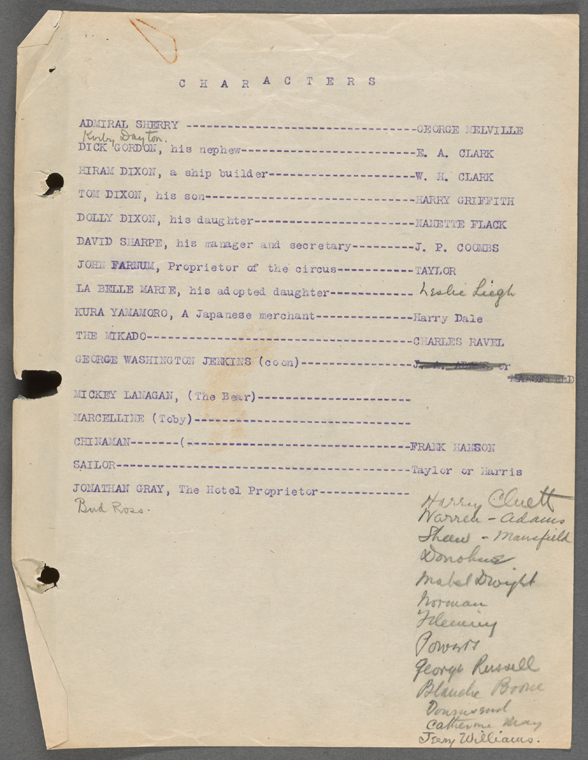 CHARACTERS
ADMIRAL SHERRY ----------------------------------GEORGE MELVILLE
Kirby Dayton.
DICK GORDON, his nephew--------------------------E. A. CLARK
HIRAM DIXON, a ship builder----------------------W. H. CLARK
TOM DIXON, his son-------------------------------HARRY GRIFFITH
DOLLY DIXON, his daughter------------------------NANETTE FLACK
DAVID SHARPE, his manager and secretary---------J. P. COOMBS
JOHN FARNUM, Proprietor of the circus-----------TAYLOR
LA BELLE MARIE, his adopted daughter------------ Leslie Liegh
KURA YAMAMORO, A Japanese merchant--------------Harry Dale
THE MIKADO---------------------------------------CHARLES RAVEL
GEORGE WASHINGTON JENKINS (coon)----------------- or
MICKEY LANAGAN, (The Bear)----------------------
MARCELLINE (Toby)--------------------------------
CHINAMAN-------(---------------------------------FRANK HANSON
SAILOR-------------------------------------------Taylor or Harris
JONATHAN GRAY, The Hotel Proprietor-------------
Bud Ross.
Harry Cluett
Warren - Adams
Shaw - Mansfield
Donohue
Mabel Dwight
Norman
Fleming
Powers
George Russell
Blanche Boone
Catherine May
Williams.